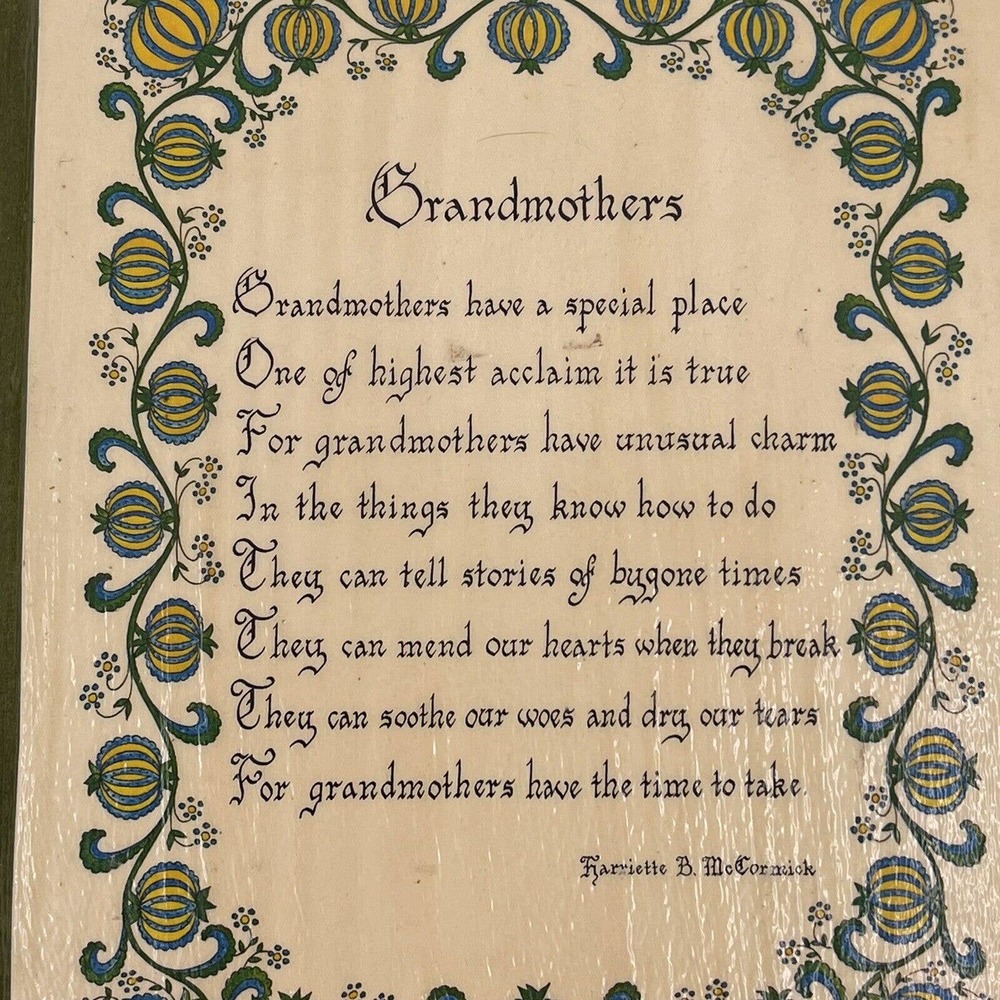 Grandmothers
Grandmothers have a special place
One of highest acclaim it is true
For grandmothers have unusual charm
In the things they know how to do
They can tell stories of bygone times
They can mend our hearts when they break
They can soothe our woes and dry our tears
For grandmothers have the time to take.
Harriette B. McCormick